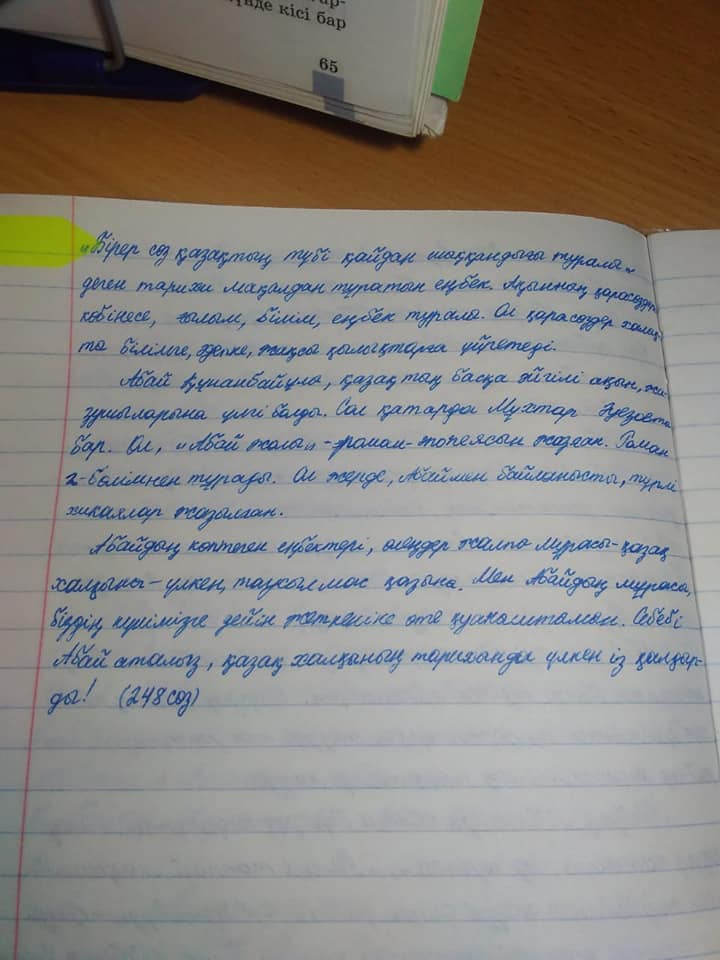 кісі бар
65
„Бірер сөз қазақтың түбі қайдан шыққандығы туралы„
деген тарихи мақалдан тұратын еңбек. Ақынның қарасөздері
көбінесе, ғылым, білім, еңбек туралы. Ол қарасөздер халық-
ты білімге, әдепке, жақсы қылықтарға үйретеді.
Абай Құнанбайұлы, қазақтың басқа әйгілі ақын, жа-
зушыларына үлгі болды. Сол қатарда Мұхтар Әуезовта
бар. Ол, „Абай жолы„ - роман-эпопеясын жазған. Роман
2-бөлімнен тұрады. Ол жерде, Абаймен байланысты, түрлі
хикаялар жазылған.
Абайдың көптеген еңбектері, өлеңдер жалпы мұрасы-қазақ
халқына - үлкен, таусылмас қазына. Мен Абайдың мұрасы,
біздің күнімізге дейін жеткеніне өте қуаныштамын. Себебі
Абай атамыз, қазақ халқының тарихында үлкен із қалдыр-
ды! (248 сөз)